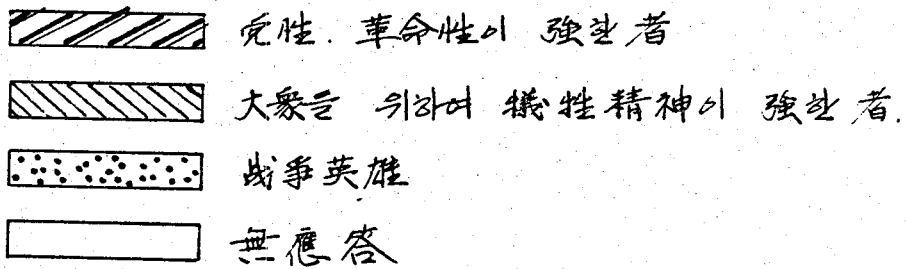 党性. 革命性이 強한 者
大衆을 위하여 犠牲精神이 強한 者.
战爭英雄
無應答